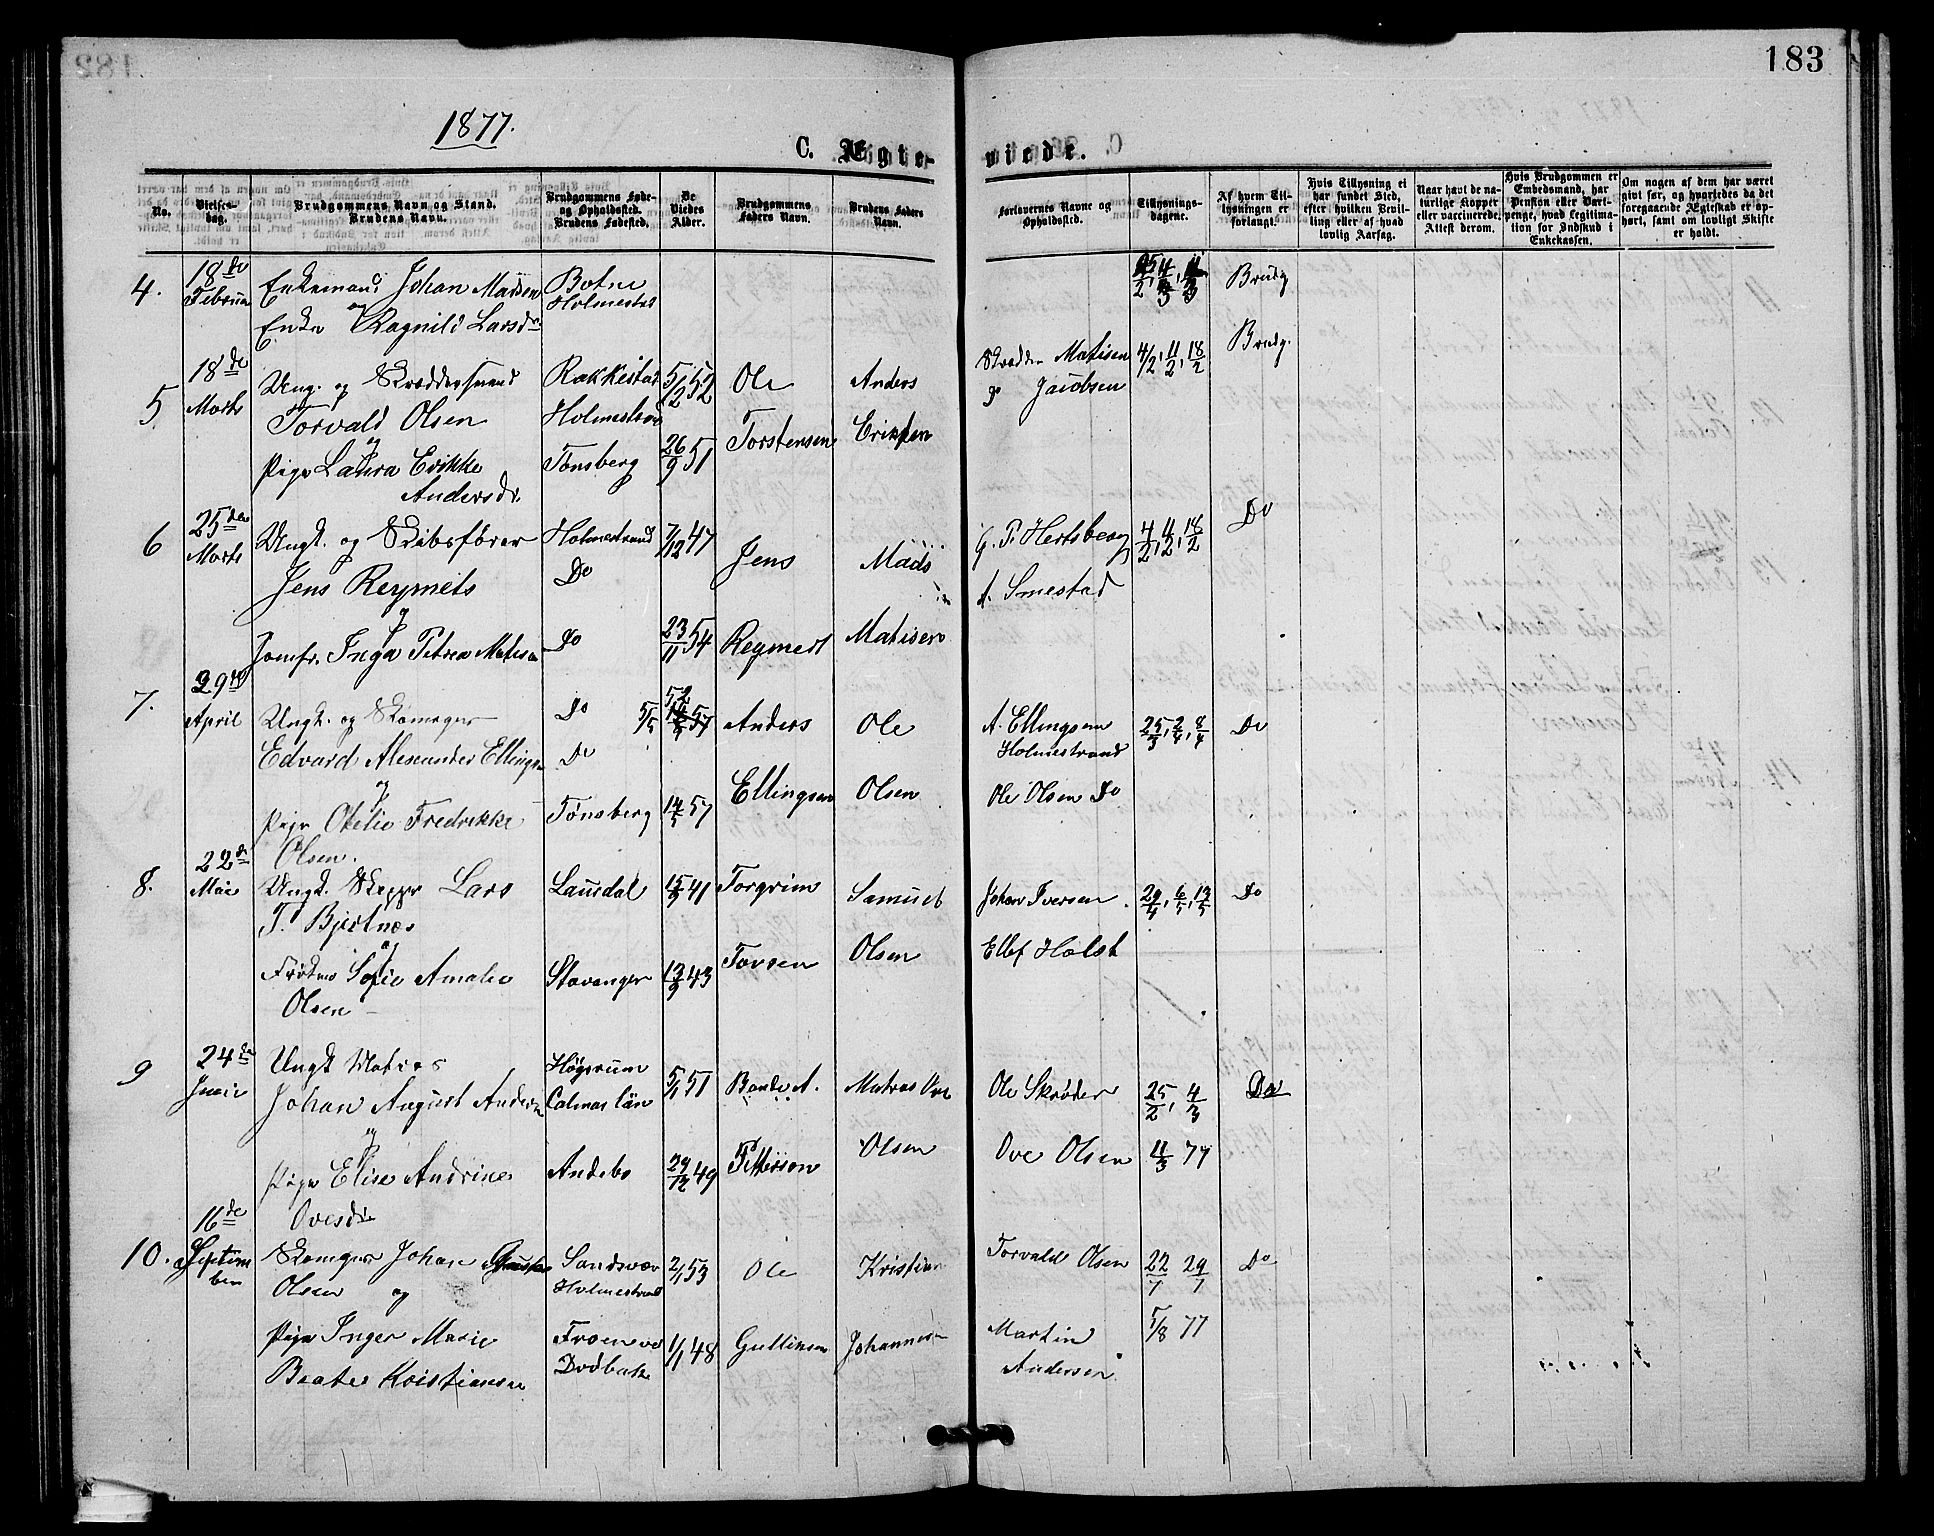 183
1877.
C. Ægte-
viede.
No.
Vielses-
dag.
Brudgommens Navn og Stand.
Brudens Navn.
Brudgommens Føde-
og Opholdssted.
Brudens Fødested.
De
Viedes
Alder.
Brudgommens
Faders Navn.
Brudens Faders
Navn.
Forlovernes Navne og
Opholdssted.
Tillysnings-
dagene.
Af hvem Til-
lysningen er
forlangt.
Hvis Tillysning ei
har fundet Sted,
efter hvilken Bevil-
ling eller af hvad
lovlig Aarsag.
Naar havt de na-
turlige Kopper
eller vaccinerede,
Attest derom.
Hvis Brudgommen er
Embedsmand, har
Pension eller Vart-
penge, hvad Legitima-
tion for Indskud i
Enkekassen.
Om nogen af dem har været
gift før, og hvorledes da det
foregaaende Ægteskab er op-
hørt, samt om lovligt Skifte
er holdt.
4.
18de
Februar
Enkemand Johan Madsen
og
Enke Ragnild Larsdr
Botne
Holmestrd
Brudg
5
18de
Marts
Ung. og Skræddersvend
Torvald Olsen
og
Pige Laura Erikke
Andersdr.
Rakkestad
Holmestrand
Tønsberg
5/12 52
26/9 51
Ole
Torstensen
Anders
Eriksen
Skrædder Matisen
Jacobsen
4/2, 11/2, 18/2
Brudg.
6
25de
Marts
Ungk. og Skibsfører
Jens Reymets
og
Jomfr. Inga Petrea Matisen
Holmestrand
Do
Do
7/12 47
23/11 54
Jens
Reymert
Mads
Matisen
G. P. Hertsberg
A. Smestad
4/2, 11/2, 18/2
Do
7.
29de
April
Ungk. og Skomager
Edvard Alexander Ellingsen
og
Pige Otelie Fredrikke
Olsen.
Do
Do
Tønsberg
5/5 52
14/5 57
Anders
Ellingsen
Ole
Olsen
A. Ellingsen
Holmestrand
Ole Olsen Do
25/3, 2/4, 8/4
Do
8.
22de
Mai
Ungk. Skipper Lars
T. Bjertnæs
og
Frøken Sofie Amalie
Olsen
Laurdal
Stavanger
15/9 41
13/9 43
Torgrim
Torsen
Samuel
Olsen
Johan Iversen
Ellef Holst
29/4, 6/5, 13/5
Do
9
24de
Juni
Ungk Matros
Johan August Andersen
og
Pige Elise Andrine
Ovesdtr
Högsrum
Calmar län
Andebo
5/1 51
29/12 49
Bonde A.
Pettersson
Matros Ove
Olsen
Ole Skrøder
Ove Olsen
25/2, 4/3
11/3 77
Do
10.
16de
Septem
ber
Skomger Johan Gustav
Olsen og
Pige Inger Marie
Beate Kristiansen
Sandsvær
Holmestrand
2/1 53
1/1 48
Ole
Gullinsen
Kristian
Johannes
Torvald Olsen
Martin
Andersen
22/7 29/7
5/8 77
Do